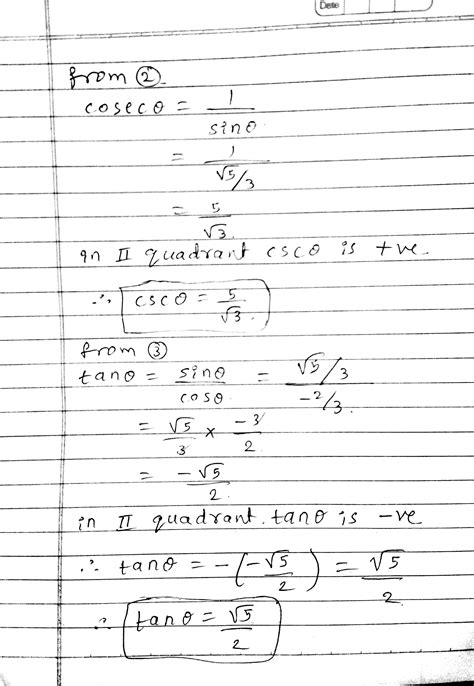 Date
from ②
cosecθ = 1/sinθ
= 1/(√5/3)
= 5/√3
In II quadrant cscθ is +ve.
∴ cscθ = 5/√3.
from ③
tanθ = sinθ/cosθ = (√5/3)/(-2/3).
= √5/3 × -3/2
= -√5/2.
in II quadrant. tanθ is -ve
∴ tanθ = -(-√5/2) = √5/2.
∴ tanθ = √5/2